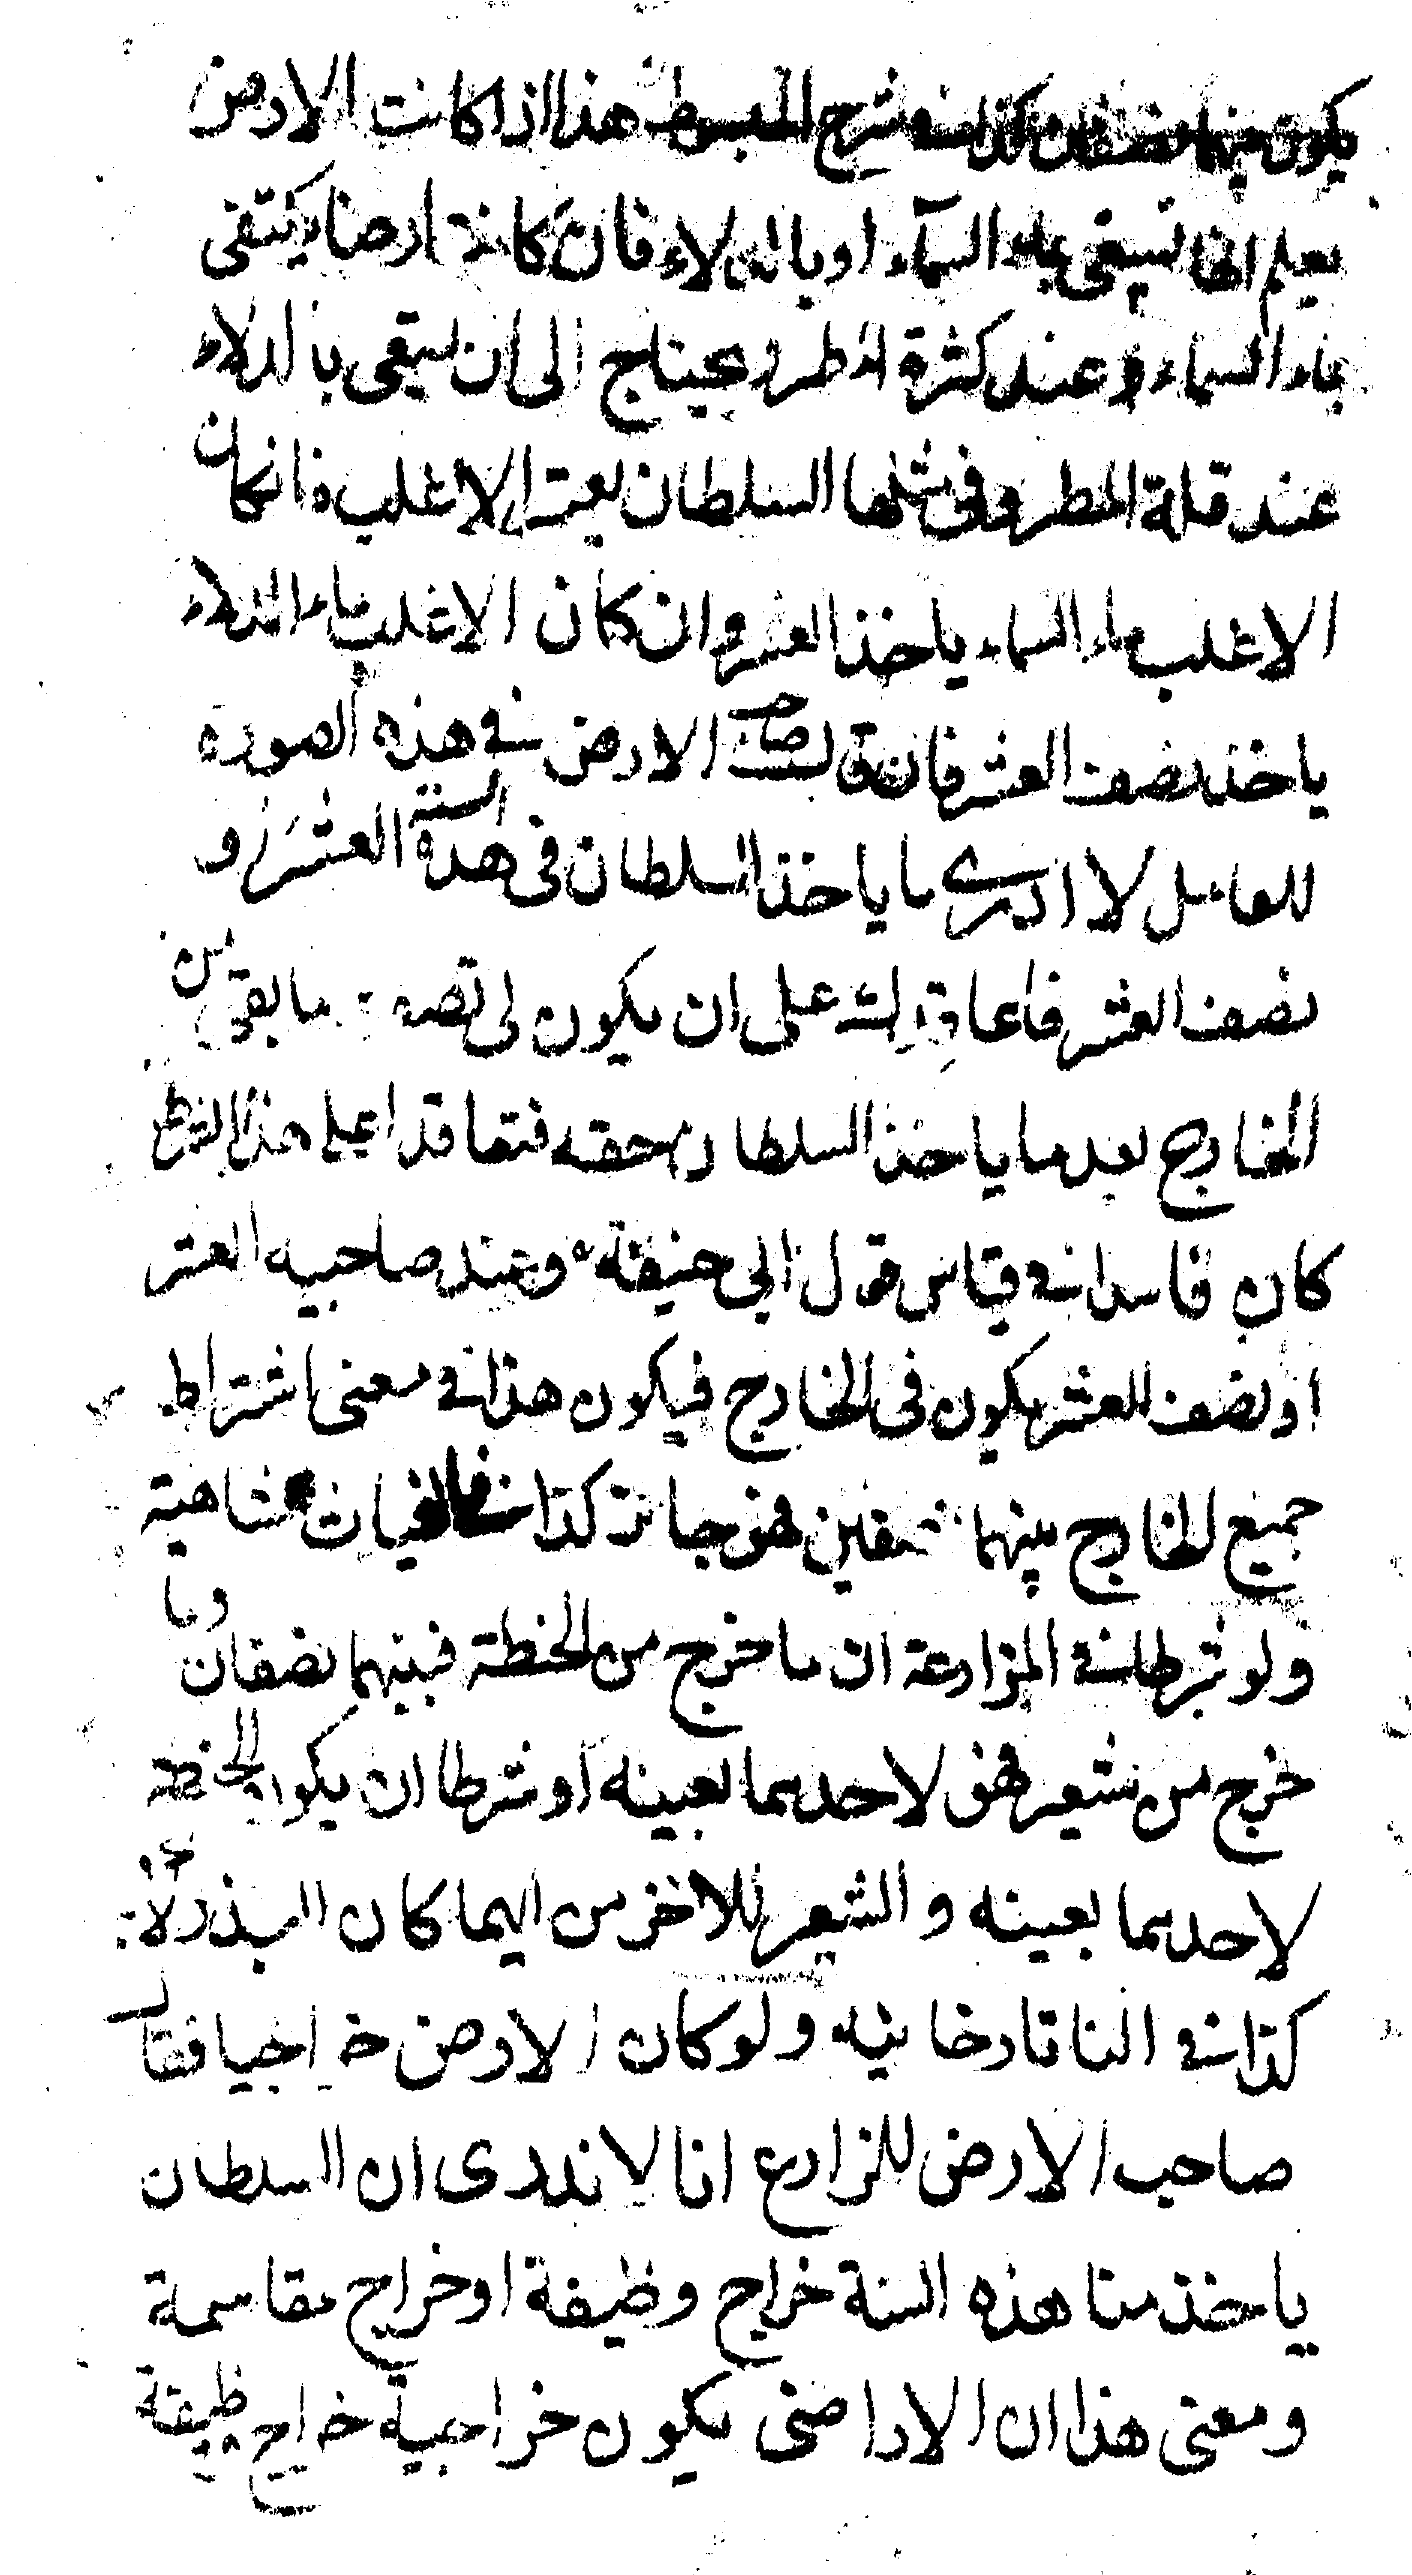 يكون بينهما نصفان كذا في شرح المبسوط هذا اذا كانت الارض
يعلم انها تسقى بماء السماء او بالدلاء فان كانت ارضا يكتفى
بماء السماء و عند كثرة المطر و يحتاج الى ان يسقى بالدلاء
عند قلة المطر و في مثلها السلطان يعتبر الاغلب فانكان
الاغلب ماء السماء ياخذ العشر وان كان الاغلب ماء الدلاء
ياخذ نصف العشر فان قال صاحب الارض في هذه الصورة
للعامل لا ادرى ما ياخذ السلطان في هذه السنة العشر او
نصف العشر فاعاقدك على ان يكون لى نصف ما بقى من
الخارج بعد ما ياخذ السلطان حقه فتعاقدا على هذا الشرط
كان فاسدا في قياس قول ابى حنيفة و عند صاحبيه العشر
او نصف العشر يكون فى الخارج فيكون هذا في معنى اشتراط
جميع الخارج بينهما نصفين فهو جائز كذا في الغياثية
ولو شرطا في المزارعة ان ما خرج من الحنطة فبينهما نصفان وما
خرج من شعير فهو لاحدهما بعينه او شرطا ان يكون الحنطة
لاحدهما بعينه و الشعير للاخر من ايهما كان البذر لا يجوز
كذا في التاتارخانيه ولو كان الارض خراجيا فقال
صاحب الارض للزارع انا لا ندرى ان السلطان
ياخذ منا هذه السنة خراج وظيفة او خراج مقاسمة
و معنى هذا ان الاراضى يكون خراجية خراج وظيفة